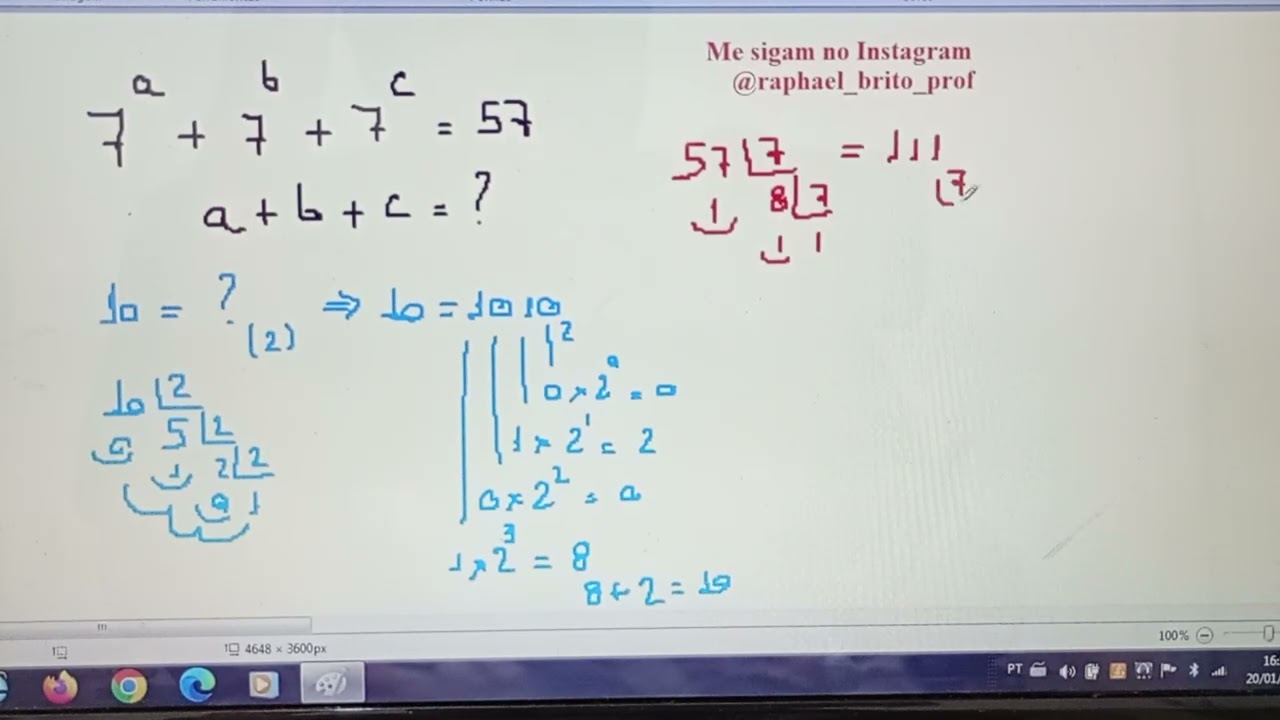 Me sigam no Instagram
@raphael_brito_prof
7^a + 7^b + 7^c = 57
a + b + c = ?
57 | 7 = 111
1 8 | 7 (7
1 1
10 = ? (2) ⇒ 10 = 1010
2
10 | 2
0 5 | 2
1 2 | 2
0 1
0 × 2^0 = 0
1 × 2^1 = 2
0 × 2^2 = 0
1 × 2^3 = 8
8 + 2 = 10
100%
4648 × 3600px
PT
16:
20/01/